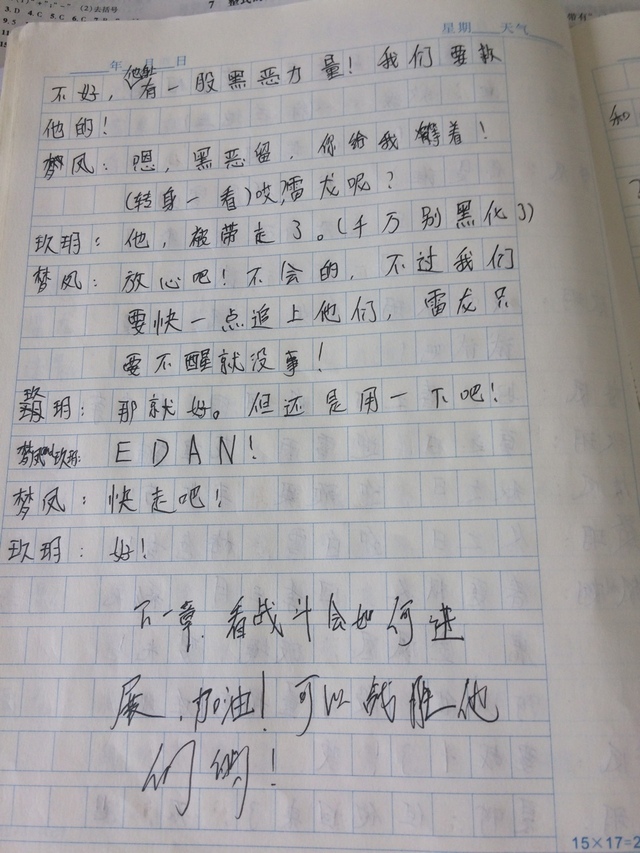 3. D 4. C 5. C 6. C 7. B
(2)去括号
7
星期 天气
年 月 日
不好，他身有一股黑恶力量！我们要救
他的！
梦风：嗯，黑恶留，你给我等着！
(转身一看)咬，雷龙呢？
玖玥：他，被带走了。(千万别黑化了)
梦风：放心吧！不会的，不过我们
要快一点追上他们，雷龙只
要不醒就没事！
玖玥：那就好。但还是用一下吧！
梦风和玖玥：EDAN！
梦风：快走吧！
玖玥：好！
下一章，看战斗会如何进
展，加油！可以战胜他
们哟！
15×17=2